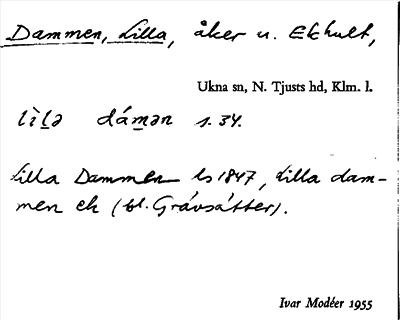 Dammen, Lilla, åker u. Ekhult,
Ukna sn, N. Tjusts hd, Klm. l.
lìlə dámən s. 34.
Lilla Dammen ls 1847, Lilla dam-
men ek (bl. Grävsätter).
Ivar Modéer 1955